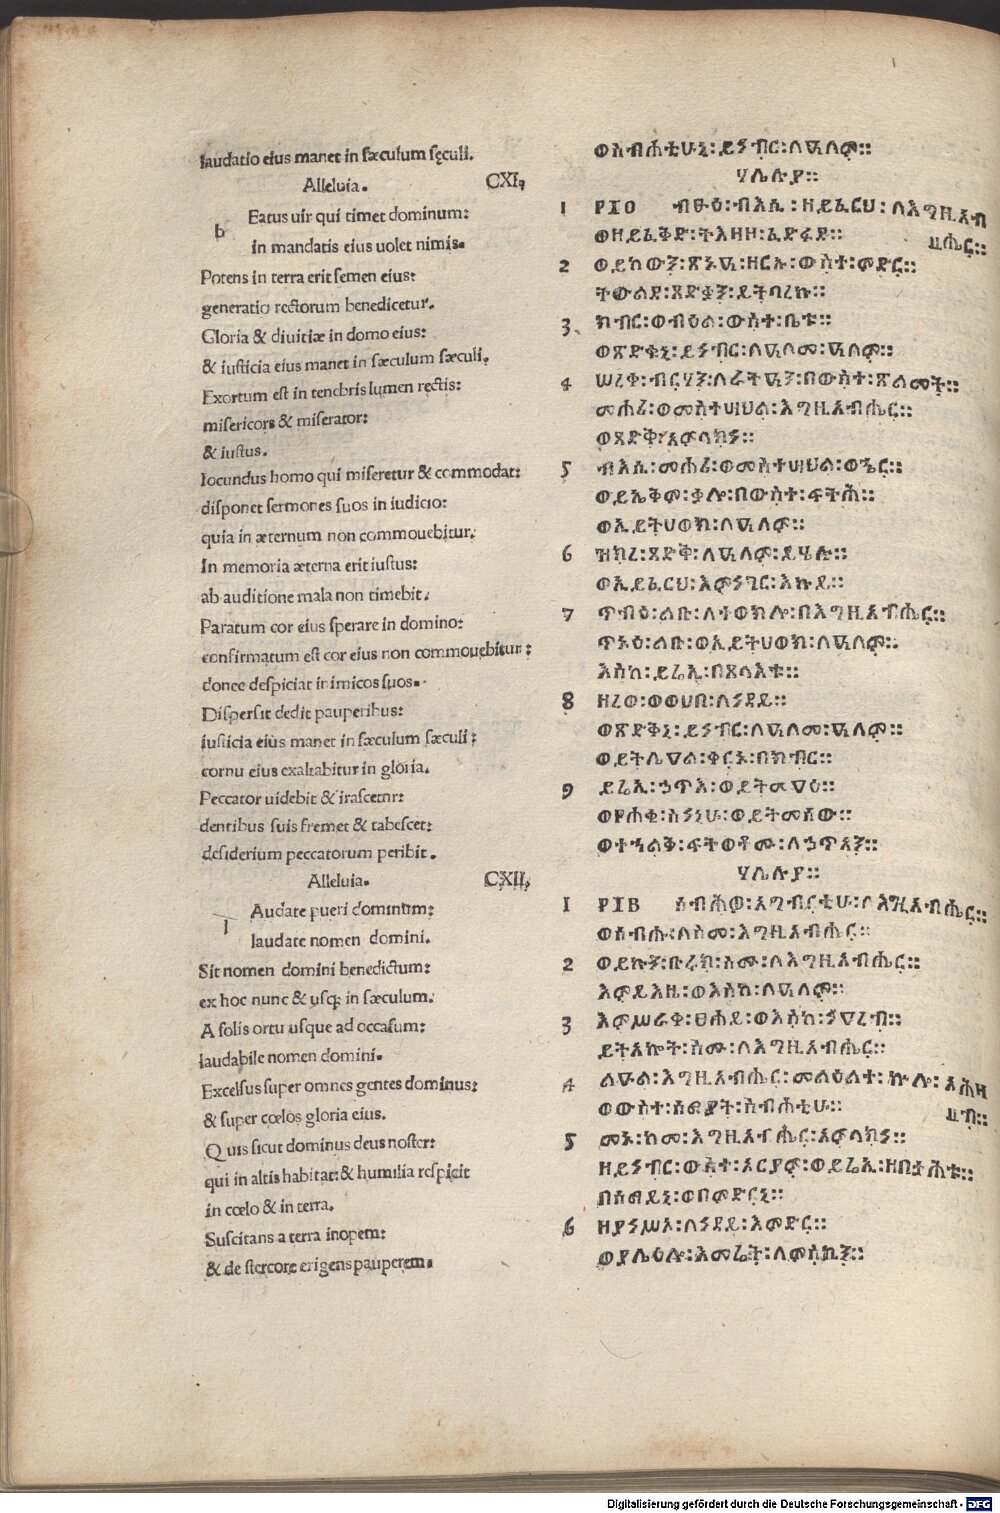 laudatio eius manet in sæculum sęculi.
Alleluia. CXI,
b Eatus uir qui timet dominum:
in mandatis eius uolet nimis.
Potens in terra erit semen eius:
generatio rectorum benedicetur.
Gloria & diuitiæ in domo eius:
& iusticia eius manet in sæculum sæculi,
Exortum est in tenebris lumen rectis:
misericors & miserator:
& iustus.
Iocundus homo qui miseretur & commodat:
disponet sermones suos in iudicio:
quia in æternum non commouebitur.
In memoria æterna erit iustus:
ab auditione mala non timebit.
Paratum cor eius sperare in domino:
confirmatum est cor eius non commouebitur:
donec despiciat inimicos suos.
Dispersit dedit pauperibus:
iusticia eius manet in sæculum sæculi:
cornu eius exaltabitur in gloria.
Peccator uidebit & irascetur:
dentibus suis fremet & tabescet:
desiderium peccatorum peribit.
Alleluia. CXII,
l Audate pueri dominum:
laudate nomen domini.
Sit nomen domini benedictum:
ex hoc nunc & usq; in sæculum.
A solis ortu usque ad occasum:
laudabile nomen domini.
Excelsus super omnes gentes dominus:
& super cœlos gloria eius.
Quis sicut dominus deus noster:
qui in altis habitat: & humilia respicit
in cœlo & in terra.
Suscitans a terra inopem:
& de stercore erigens pauperem.
ወስብሐቲሁኒ፡ይነብር፡ለዓለም።
ሃሌሉያ።
1 ፻፲፩ ብፁዕ፡ብእሲ፡ዘይፈርህ፡ለእግዚአብ
ሔር።
ወዘይፈቅድ፡ትእዛዞ፡ፈድፋደ።
2 ወይከውን፡ጽኑዕ፡ዘርኡ፡ውስተ፡ምድር።
ትውልደ፡ጻድቃን፡ይትባረኩ።
3 ክብር፡ወብዕል፡ውስተ፡ቤቱ።
ወጽድቁኒ፡ይነብር፡ለዓለመ፡ዓለም።
4 ሠረቀ፡ብርሃን፡ለራትዓን፡በውስተ፡ጽልመት።
መሐሪ፡ወመስተሣህል፡እግዚአብሔር።
ወጻድቅ፡አምላክነ።
5 ብእሲ፡መሐሪ፡ወመስተሣህል፡ወኄር።
ወይኤቅም፡ቃሎ፡በውስተ፡ፍትሕ።
ወኢይትሀወክ፡ለዓለም።
6 ዝክረ፡ጻድቅ፡ለዓለም፡ይሄሉ።
ወኢይፈርህ፡እምነገር፡እኩይ።
7 ጥቡዕ፡ልቡ፡ለተወክሎ፡በእግዚአብሔር።
ጽኑዕ፡ልቡ፡ወኢይትሀወክ፡ለዓለም።
እስከ፡ይሬኢ፡በጸላእቱ።
8 ዘረወ፡ወወሀበ፡ለነዳይ።
ወጽድቁኒ፡ይነብር፡ለዓለመ፡ዓለም።
ወይትሌዓል፡ቀርኑ፡በክብር።
9 ይሬኢ፡ኃጥእ፡ወይትመዓዕ።
ወየሐቂ፡ስነኒሁ፡ወይትመሰው።
ወተኀልቅ፡ፍትወቶሙ፡ለኃጥአን።
ሃሌሉያ።
1 ፻፲፪ ሰብሕዎ፡አግብርቲሁ፡ለእግዚአብሔር።
ወሰብሑ፡ለስመ፡እግዚአብሔር።
2 ወይኩን፡ቡሩክ፡ስሙ፡ለእግዚአብሔር።
እምይእዜ፡ወእስከ፡ለዓለም።
3 እምሥራቀ፡ፀሐይ፡ወእስከ፡ነዓረብ።
ይትአኰት፡ስሙ፡ለእግዚአብሔር።
4 ልዑል፡እግዚአብሔር፡መልዕልተ፡ኵሎ፡አሕዛ
ዛብ።
ወውስተ፡ሰማያት፡ስብሐቲሁ።
5 መኑ፡ከመ፡እግዚአብሔር፡አምላክነ።
ዘይነብር፡ውስተ፡አርያም፡ወይሬኢ፡ዘበታሕቱ።
በሰማይኒ፡ወበምድርኒ።
6 ዘያነሥእ፡ለነዳይ፡እምድር።
ወያሌዕሎ፡እመሬት፡ለምስኪን።
Digitalisierung gefördert durch die Deutsche Forschungsgemeinschaft - DFG